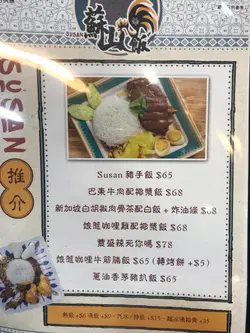 SUSAN
SUSAN
推
介
Susan 豬手飯 $65
巴東牛肉配椰漿飯 $68
新加坡白胡椒肉骨茶配白飯 + 炸油條 $68
惹惹咖喱雞配椰漿飯 $68
豐盛辣死你嗎 $78
咖喱牛筋腩飯 $65 (轉烤餅 + $5)
蔥油香茅豬扒飯 $65